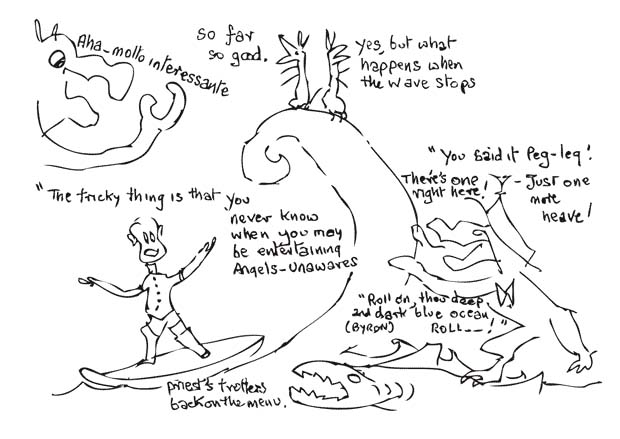 Aha-molto interessante
so far
so good.
yes, but what
happens when
the wave stops
"You said it Peg-leg!
There's one
right here!
- Just one
more
heave!
"The tricky thing is that you
never know
when you may
be entertaining
Angels-Unawares
"Roll on, thou deep
and dark blue ocean
(BYRON) ROLL--!"
priest's trotters
back on the menu.